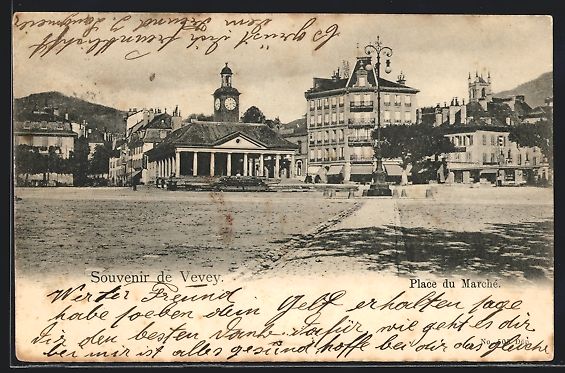 Souvenir de Vevey.
Place du Marché.
Werter Freund
habe soeben dein Geld erhalten sage
dir den besten Dank dafür wie geht es dir
bei mir ist alles gesund hoffe bei dir das gleiche
Es grüsst dich dein
Freund